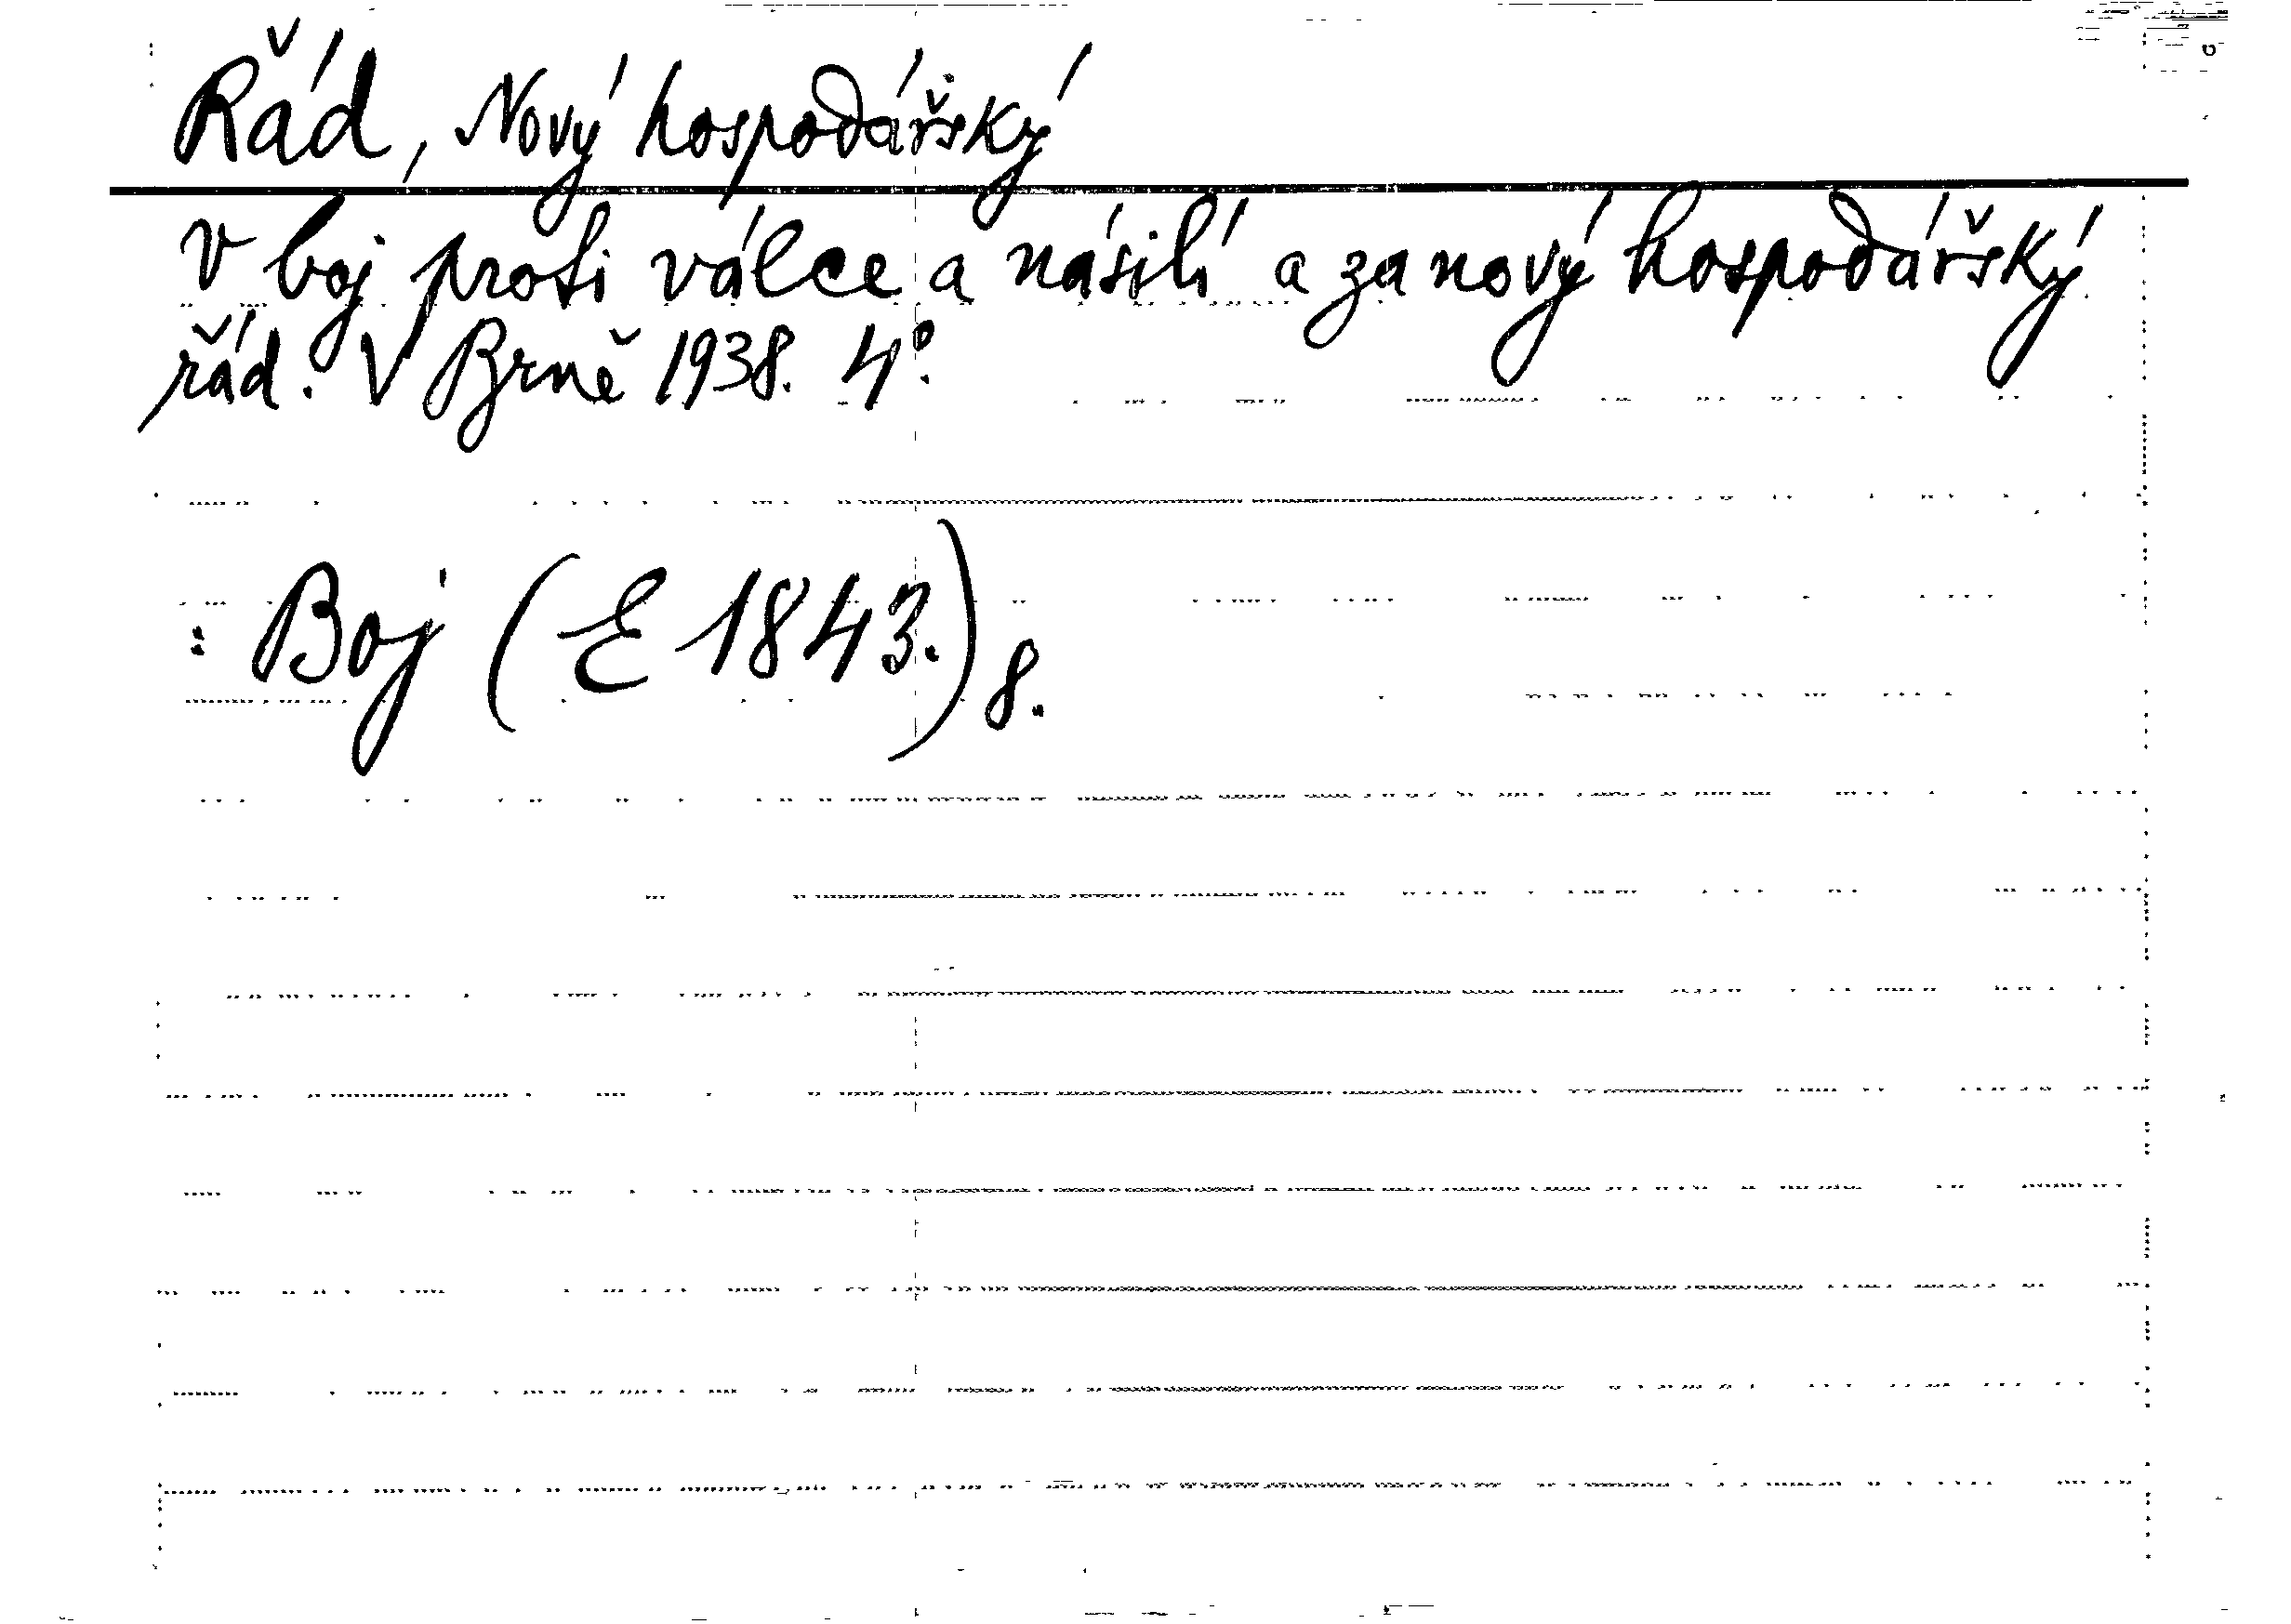 Řád, Nový hospodářský
V boj proti válce a násilí a za nový hospodářský
řád. V Brně 1938. 4°.
: Boj (E 1843.) 8.